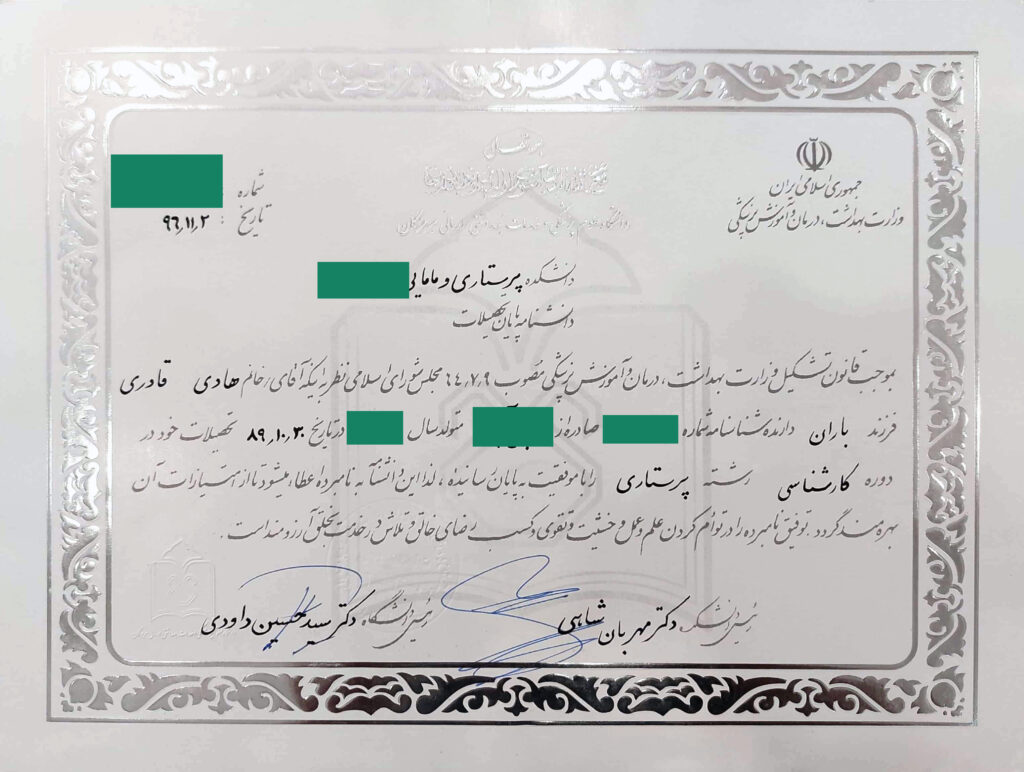 جمهوری اسلامی ایران
وزارت بهداشت، درمان و آموزش پزشکی
شماره
تاریخ : ۹۶٫۱۱٫۲
دانشکده پرستاری و مامایی
دانشنامه پایان تحصیلات
بموجب قانون تشکیل وزارت بهداشت، درمان و آموزش پزشکی مصوب ۶۴٫۷٫۹ مجلس شورای اسلامی نظر به اینکه آقای/خانم هادی قادری
فرزند باران دارنده شناسنامه شماره صادره از متولد سال در تاریخ ۸۹٫۱۰٫۳۰ تحصیلات خود در
دوره کارشناسی رشته پرستاری را با موفقیت به پایان رسانیده، لذا این دانشنامه به نامبرده اعطاء میشود تا از امتیازات آن
بهره‌مند گردد. توفیق نامبرده را در توأم کردن علم و عمل و خشیت و تقوی و کسب رضای خالق و تلاش در خدمت بخلق آرزومند است.
رئیس دانشکده دکتر مهربان شاهی
رئیس دانشگاه دکتر سید حسین داودی